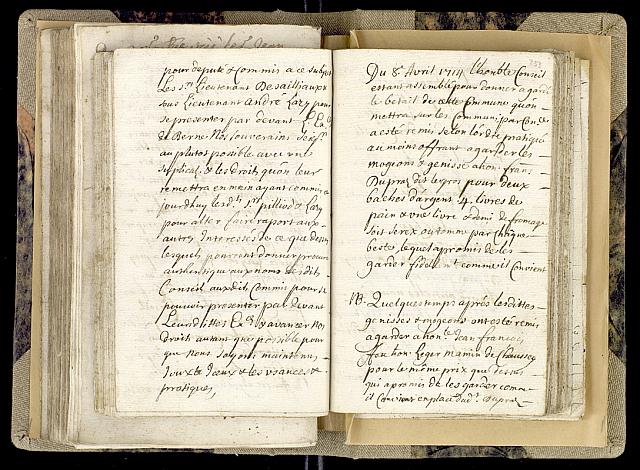 pour deputé & Commis a ce subjet
Les Srs Lieutenant Desailliaux &
sous Lieutenant André Lazy pour
se presenter par devant L. Ex.
de Berne Nos souverains Seigrs
au plutost possible avec une
suplical, & les droits quon leur
remettra en main ayant commis
jourdhuy les ds. Srs pilliod & Lazy
pour aller faire raport aux
autres Interessés de ce que dessus
lesquels pourront donner procure
authentique aux noms desdits
Conseil auxdits Commis pour se
pouvoir presenter par devant
Leursdittes Exces. & avancer nos
droits autant que possible pour
que nous soyons maintenus,
Jouxte dieux & les usances &
pratiques,
Du 8e Avril 1714 l'honble Conseil
estans assemblé pour donner a garder
le bétail de cette Commune quon
mettra sur les Communs par Con
a esté remis selon lordre pratiqué
au moins offrant a garder les
mogeons & genisse a hon. frans
Dupraz dit le gros pour deux
baches d'argent 4. livres de
pain & une livre & demi de fromage
soit serex ou tomme par chaque
beste, lequel a promis de les
garder fidellemt comme il Convient
NB. Quelques temps aprés lesdittes
genisses & mogeons ont esté remis
a garder a hon. Jean françois
feu hon. Leger mamin de
pour le même prix que dessus
qui a promis de les garder comme
il Convient en place dud. Dupraz